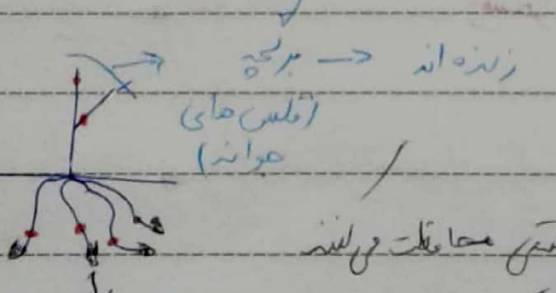 زنده اند ← برگچه
(فلس های
جوانه)
محافظت می کنند